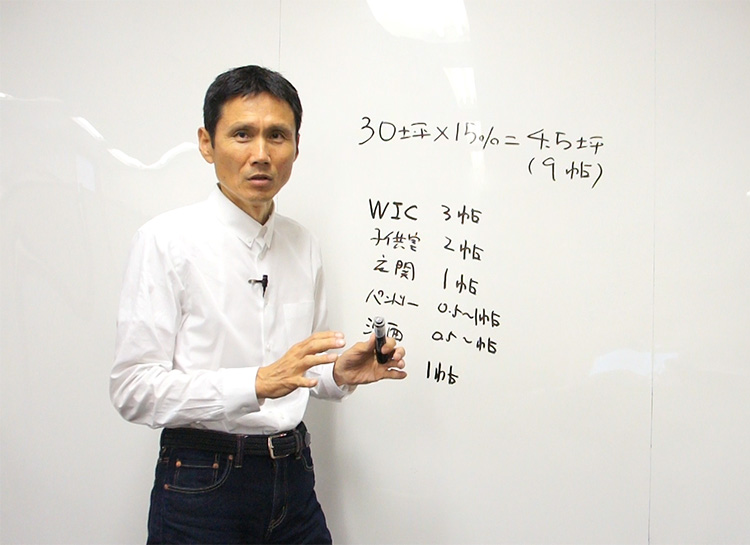 30坪×15%=4.5坪
(9帖)
WIC 3帖
子供室 2帖
玄関 1帖
パントリー 0.5~1帖
0.5~帖
1帖